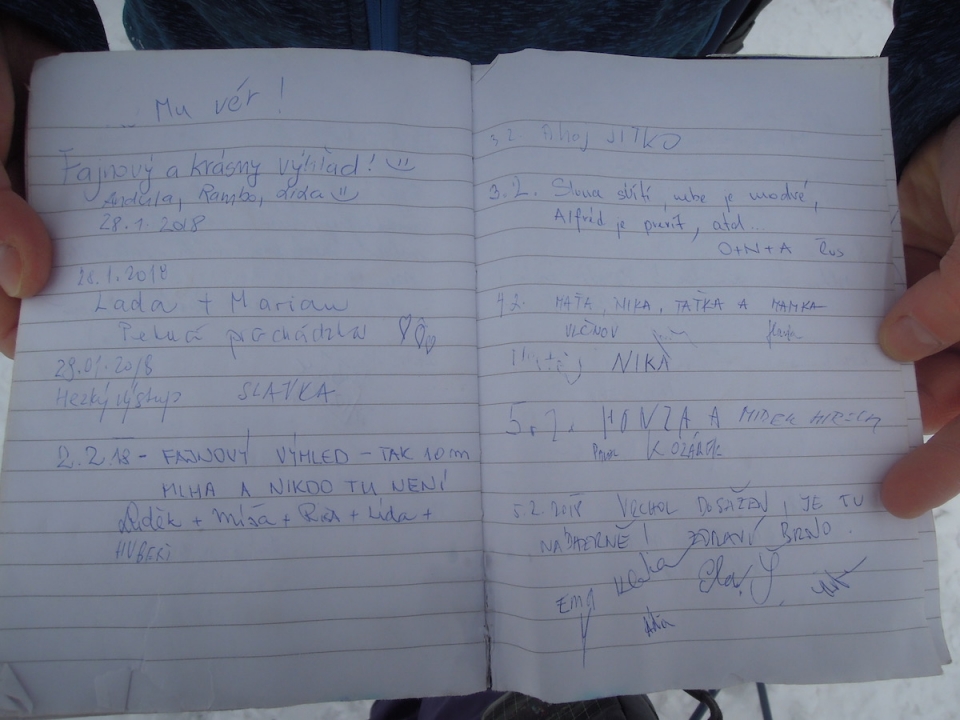 Mu vér!
Fajnový a krásny výhľad!
Andula, Rambo, Lída
28.1.2018
28.1.2018
Lada + Marian
Pekná prochádzka
29.01.2018
Hezký výstup SLAVKA
2.2.18 - FAJNOVÝ VÝHLED - TAK 10 cm
MLHA A NIKDO TU NENÍ
Luděk + Míša + + Lída +
HUBERT
3.2. Ahoj JITKO
3.2. Slunce svítí, nebe je modré,
Alfréd je , atd...
O+N+A
4.2. MAŤA, NIKA, TAŤKA A MAMKA
VLČNOV
NIKA
5.2. HONZA A MIREK
5.2.2018 VRCHOL DOSAŽEN, JE TU
NÁDHERNĚ! ZDRAVÍ BRNO.
EMA